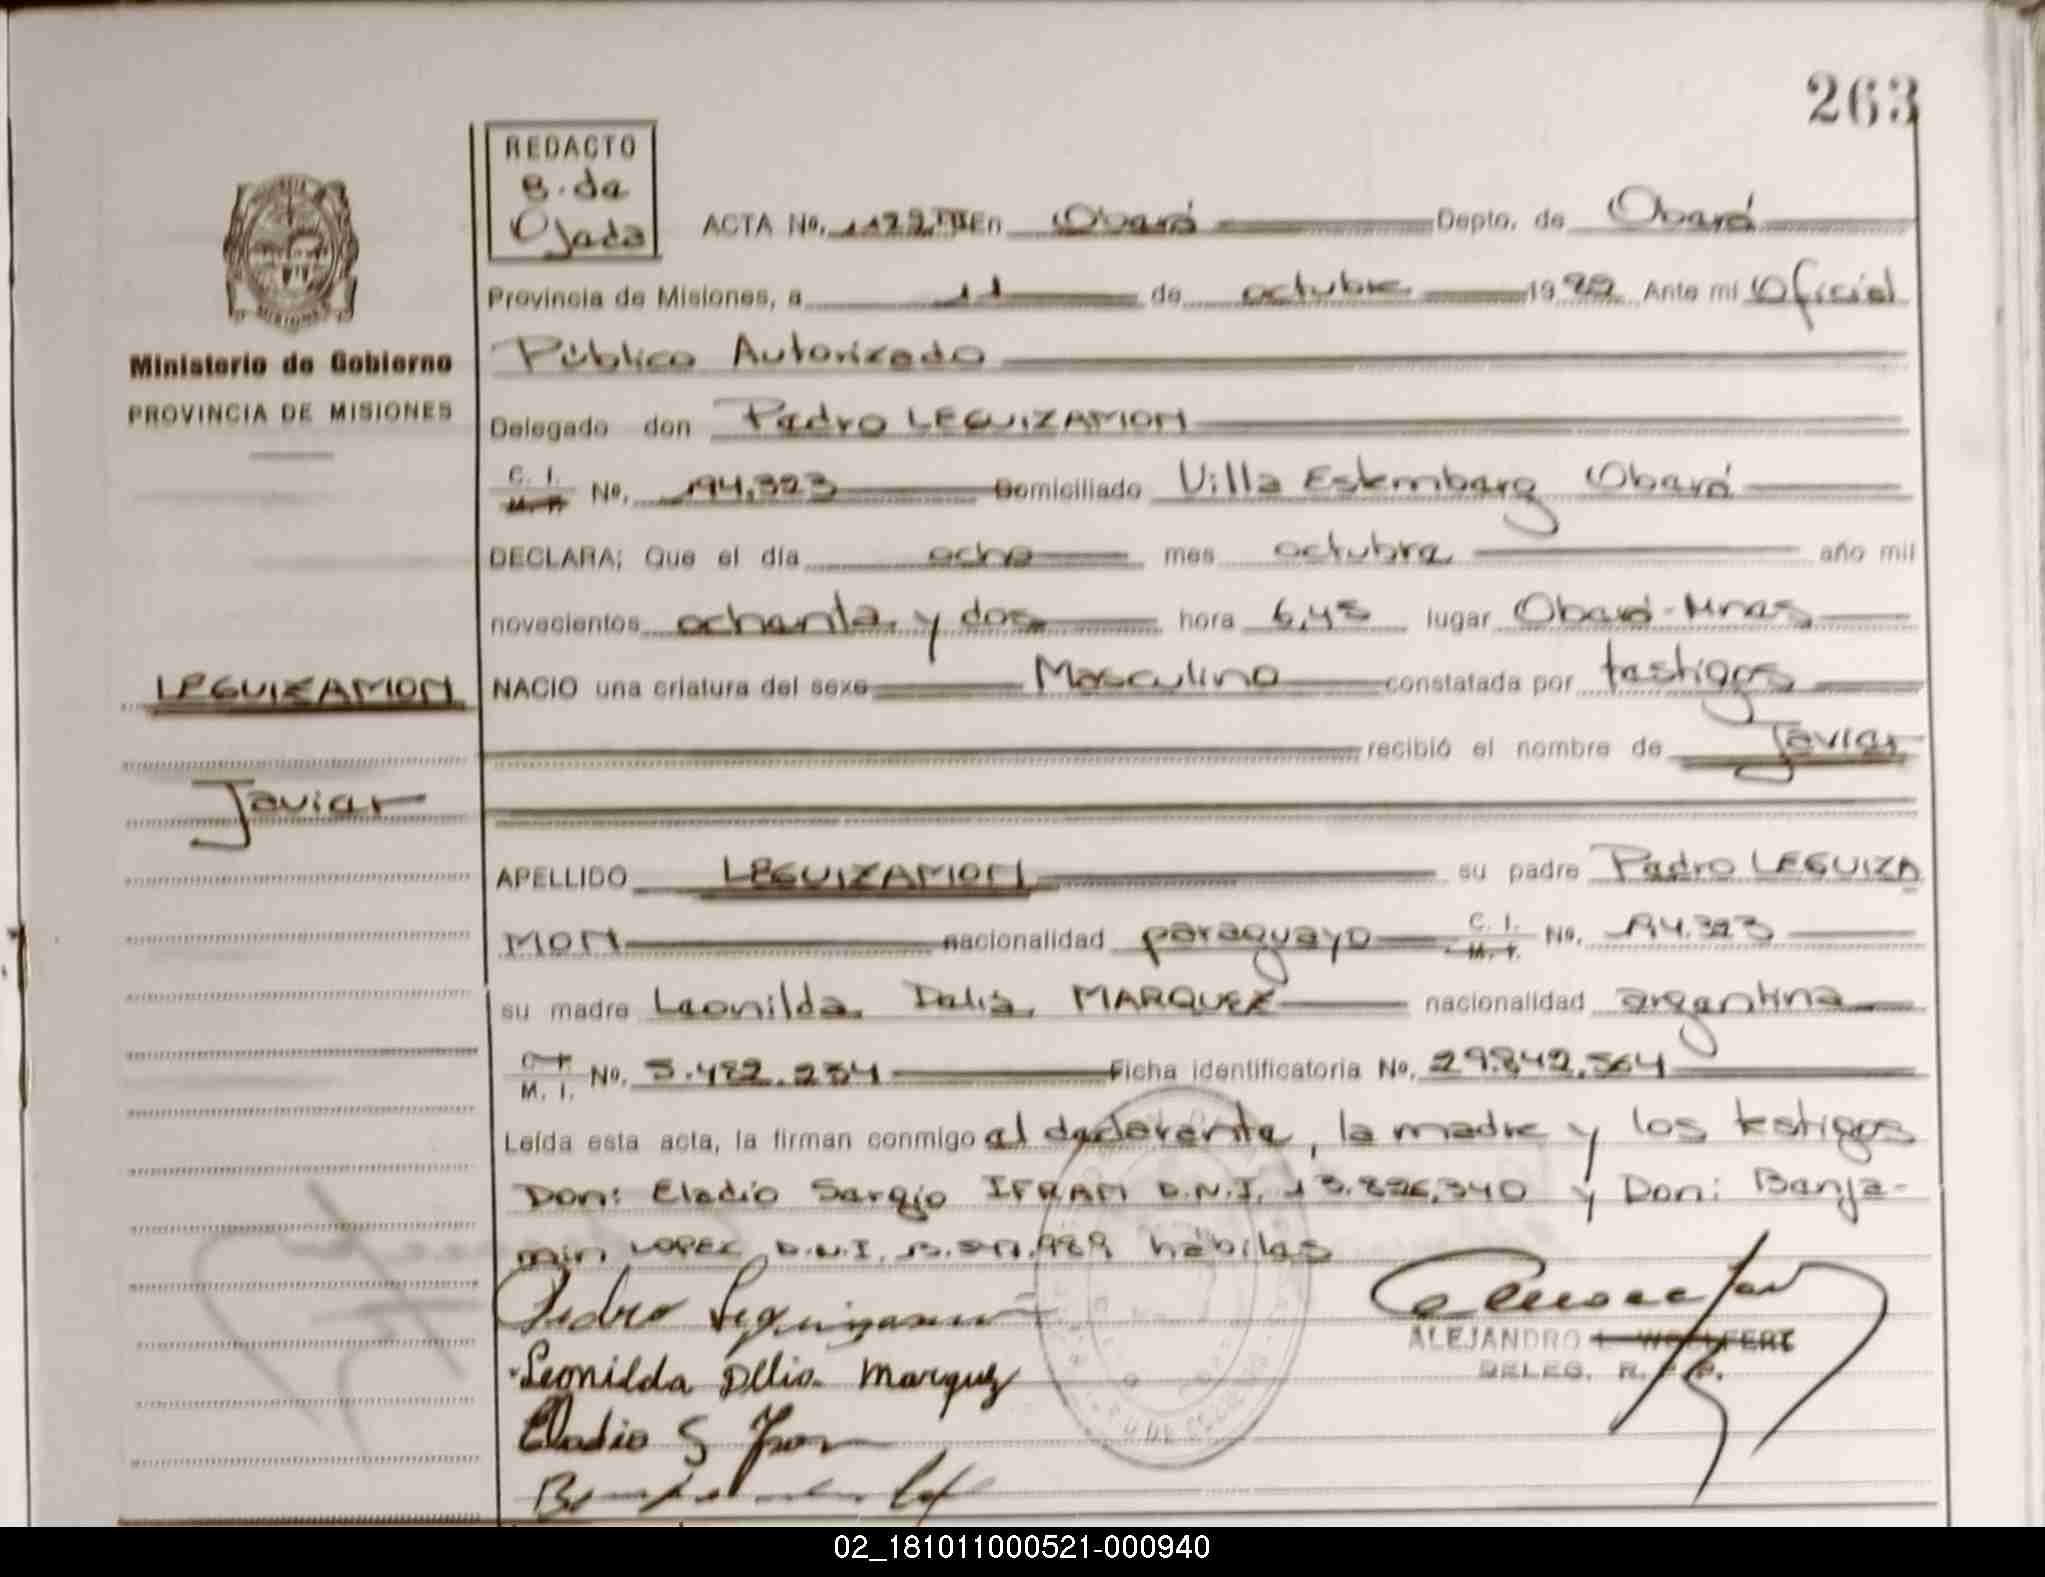 263
REDACTO
B. da
Ojeda
ACTA Nº. En Oberá Depto. de Oberá
Provincia de Misiones, a 11 de octubre 1982 Ante mi Oficial
Público Autorizado
Delegado don Pedro LEGUIZAMON
C. I.
M. I. Nº. 194.323 Domiciliado Villa Oberá
DECLARA; Que el día ocho mes octubre año mil
novecientos ochenta y dos hora 6,45 lugar Oberá-Mnes
NACIO una criatura del sexo Masculino constatada por testigos
recibió el nombre de Javier
APELLIDO LEGUIZAMON su padre Pedro LEGUIZA
MON nacionalidad paraguayo C. I. M. I. Nº. 194.323
su madre Leonilda Delia MARQUEZ nacionalidad argentina
C. I.
M. I. Nº. 5.482.254 Ficha identificatoria Nº. 29.842.564
Leída esta acta, la firman conmigo el declarante, la madre y los testigos
Don: Eladio Sergio IFRAM D.N.I. y Don: Benja-
min LOPEZ D.N.I. hábiles
Pedro Leguizamon
Leonilda Dllia Marquez
Eladio S
ALEJANDRO
DELEG. R.
Ministerio de Gobierno
PROVINCIA DE MISIONES
LEGUIZAMON
Javier
02_181011000521-000940